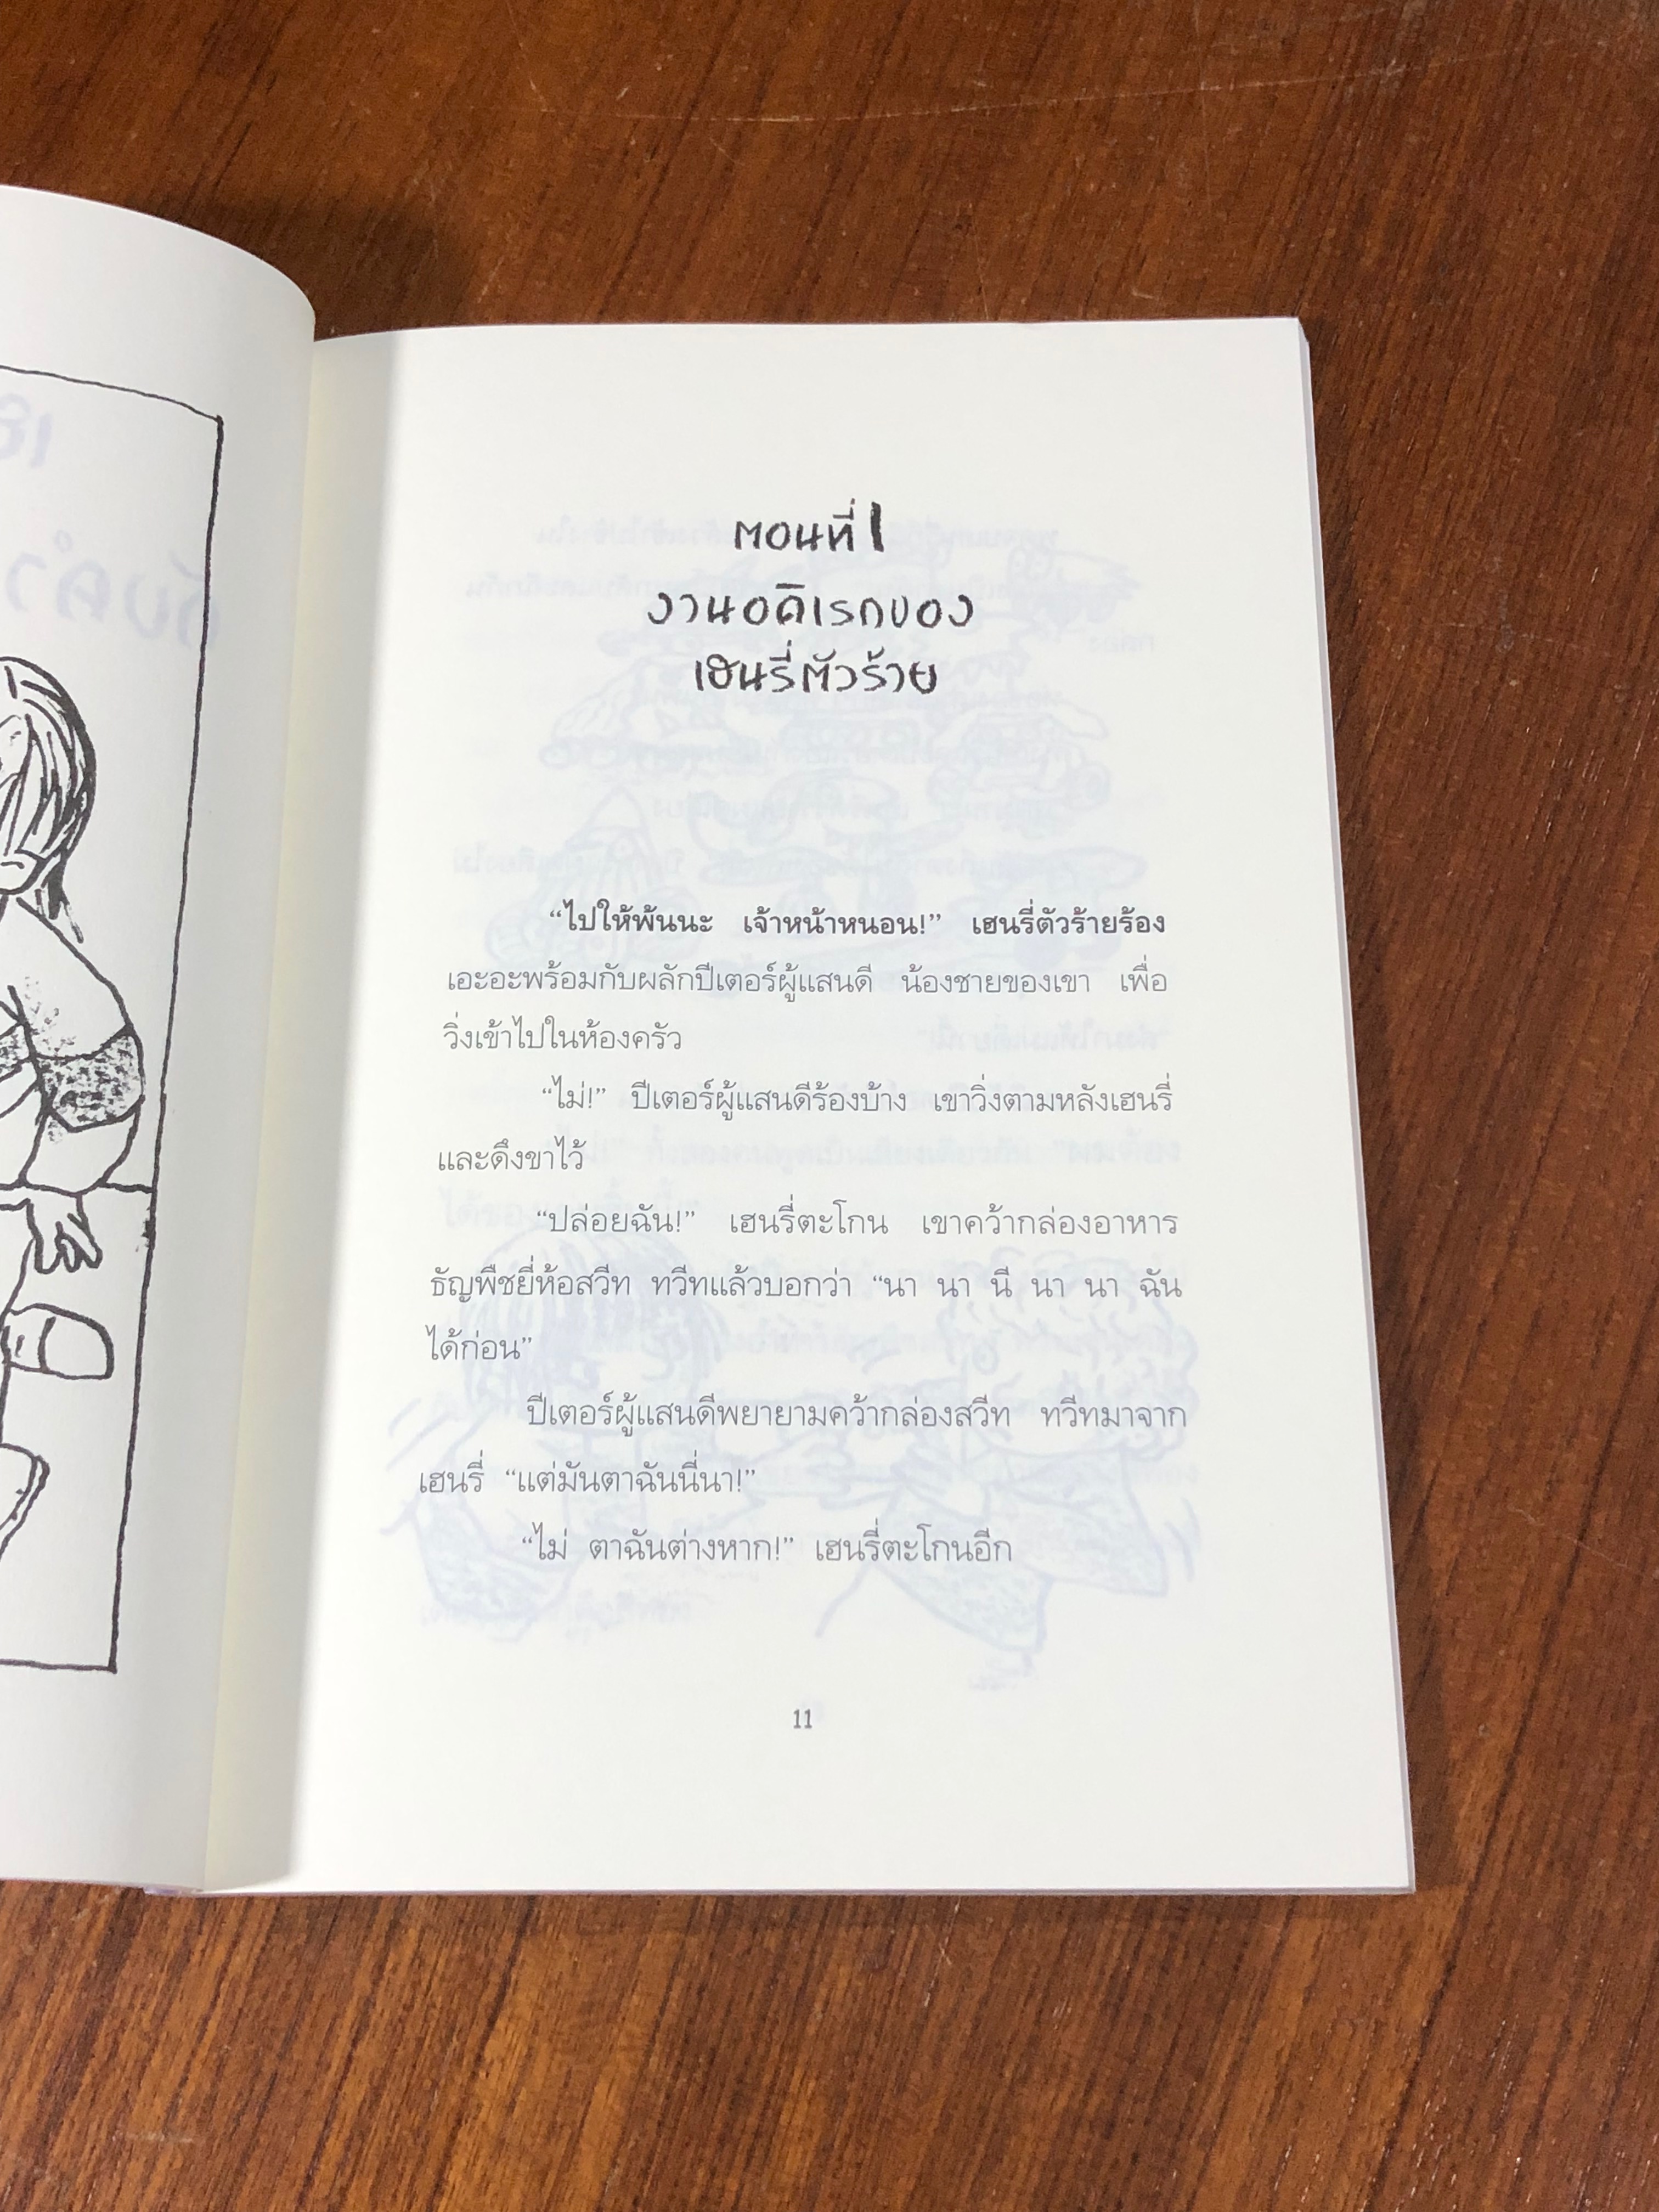 ตอนที่ 1
งานอดิเรกของ
เฮนรี่ตัวร้าย
“ไปให้พ้นนะ เจ้าหน้าหนอน!” เฮนรี่ตัวร้ายร้อง
เอะอะพร้อมกับผลักปีเตอร์ผู้แสนดี น้องชายของเขา เพื่อ
วิ่งเข้าไปในห้องครัว
“ไม่!” ปีเตอร์ผู้แสนดีร้องบ้าง เขาวิ่งตามหลังเฮนรี่
และดึงขาไว้
“ปล่อยฉัน!” เฮนรี่ตะโกน เขาคว้ากล่องอาหาร
ธัญพืชยี่ห้อสวีท ทวีทแล้วบอกว่า “นา นา นี นา นา ฉัน
ได้ก่อน”
ปีเตอร์ผู้แสนดีพยายามคว้ากล่องสวีท ทวีทมาจาก
เฮนรี่ “แต่มันตาฉันนี่นา!”
“ไม่ ตาฉันต่างหาก!” เฮนรี่ตะโกนอีก
11